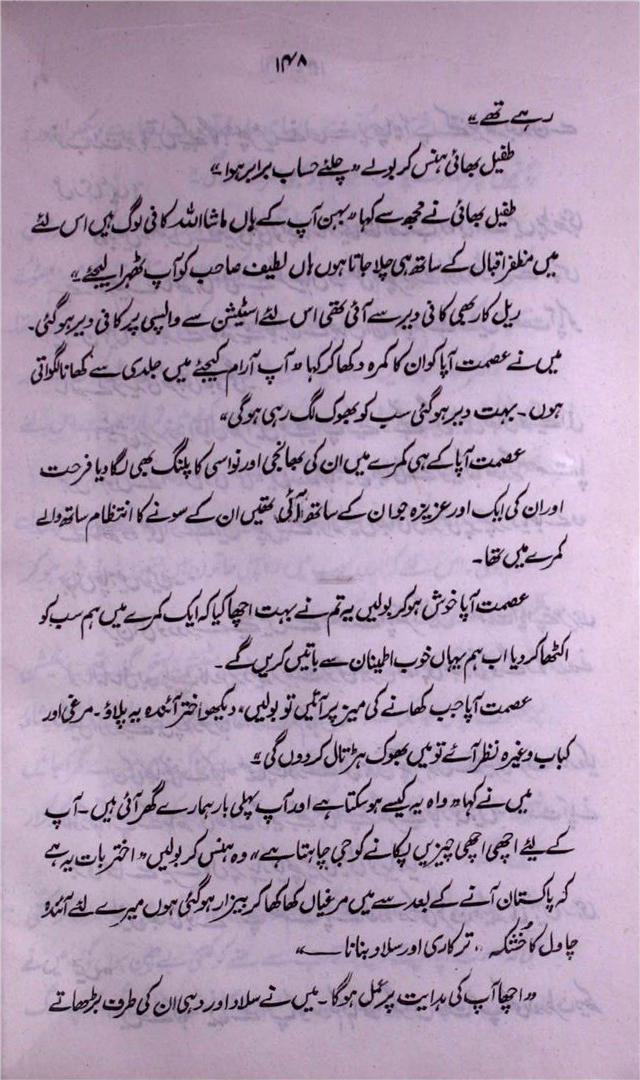 ۱۴۸
رہے تھے“
طفیل بھائی ہنس کر بولے ”چلئے حساب برابر ہوا“
طفیل بھائی نے مجھ سے کہا ”بہن آپ کے ہاں ماشا اللہ کافی لوگ ہیں اس لئے
میں مظفر اقبال کے ساتھ ہی چلا جاتا ہوں ہاں لطیف صاحب کو آپ ٹھہرا لیجئے“
ریل کار بھی کافی دیر سے آئی تھی اس لئے اسٹیشن سے واپسی پر کافی دیر ہو گئی۔
میں نے عصمت آپا کو ان کا کمرہ دکھا کر کہا ”آپ آرام کیجئے میں جلدی سے کھانا لگواتی
ہوں۔ بہت دیر ہو گئی سب کو بھوک لگ رہی ہوگی“
عصمت آپا کے ہی کمرے میں ان کی بھانجی اور نواسی کا پلنگ بھی لگا دیا فرحت
اور ان کی ایک اور عزیزہ جو ان کے ساتھ آئی تھیں ان کے سونے کا انتظام ساتھ والے
کمرے میں تھا۔
عصمت آپا خوش ہو کر بولیں یہ تم نے بہت اچھا کیا کہ ایک کمرے میں ہم سب کو
اکٹھا کر دیا اب ہم یہاں خوب اطینان سے باتیں کریں گے۔
عصمت آپا جب کھانے کی میز پر آئیں تو بولیں، دیکھو اختر آئندہ یہ پلاؤ۔ مرغی اور
کباب وغیرہ نظر آئے تو میں بھوک ہڑتال کر دوں گی“
میں نے کہا ”واہ یہ کیسے ہو سکتا ہے اور آپ پہلی بار ہمارے گھر آئی ہیں۔ آپ
کے لئے اچھی اچھی چیزیں پکانے کو جی چاہتا ہے“ وہ ہنس کر بولیں ”اختر بات یہ ہے
کہ پاکستان آنے کے بعد سے میں مرغیاں کھا کھا کر بیزار ہو گئی ہوں میرے لئے آئندہ
چاول کا خُشکہ ،، ترکاری اور سلاد بنانا ——“
”اچھا آپ کی ہدایت پر عمل ہوگا۔ میں نے سلاد اور دہی ان کی طرف بڑھاتے